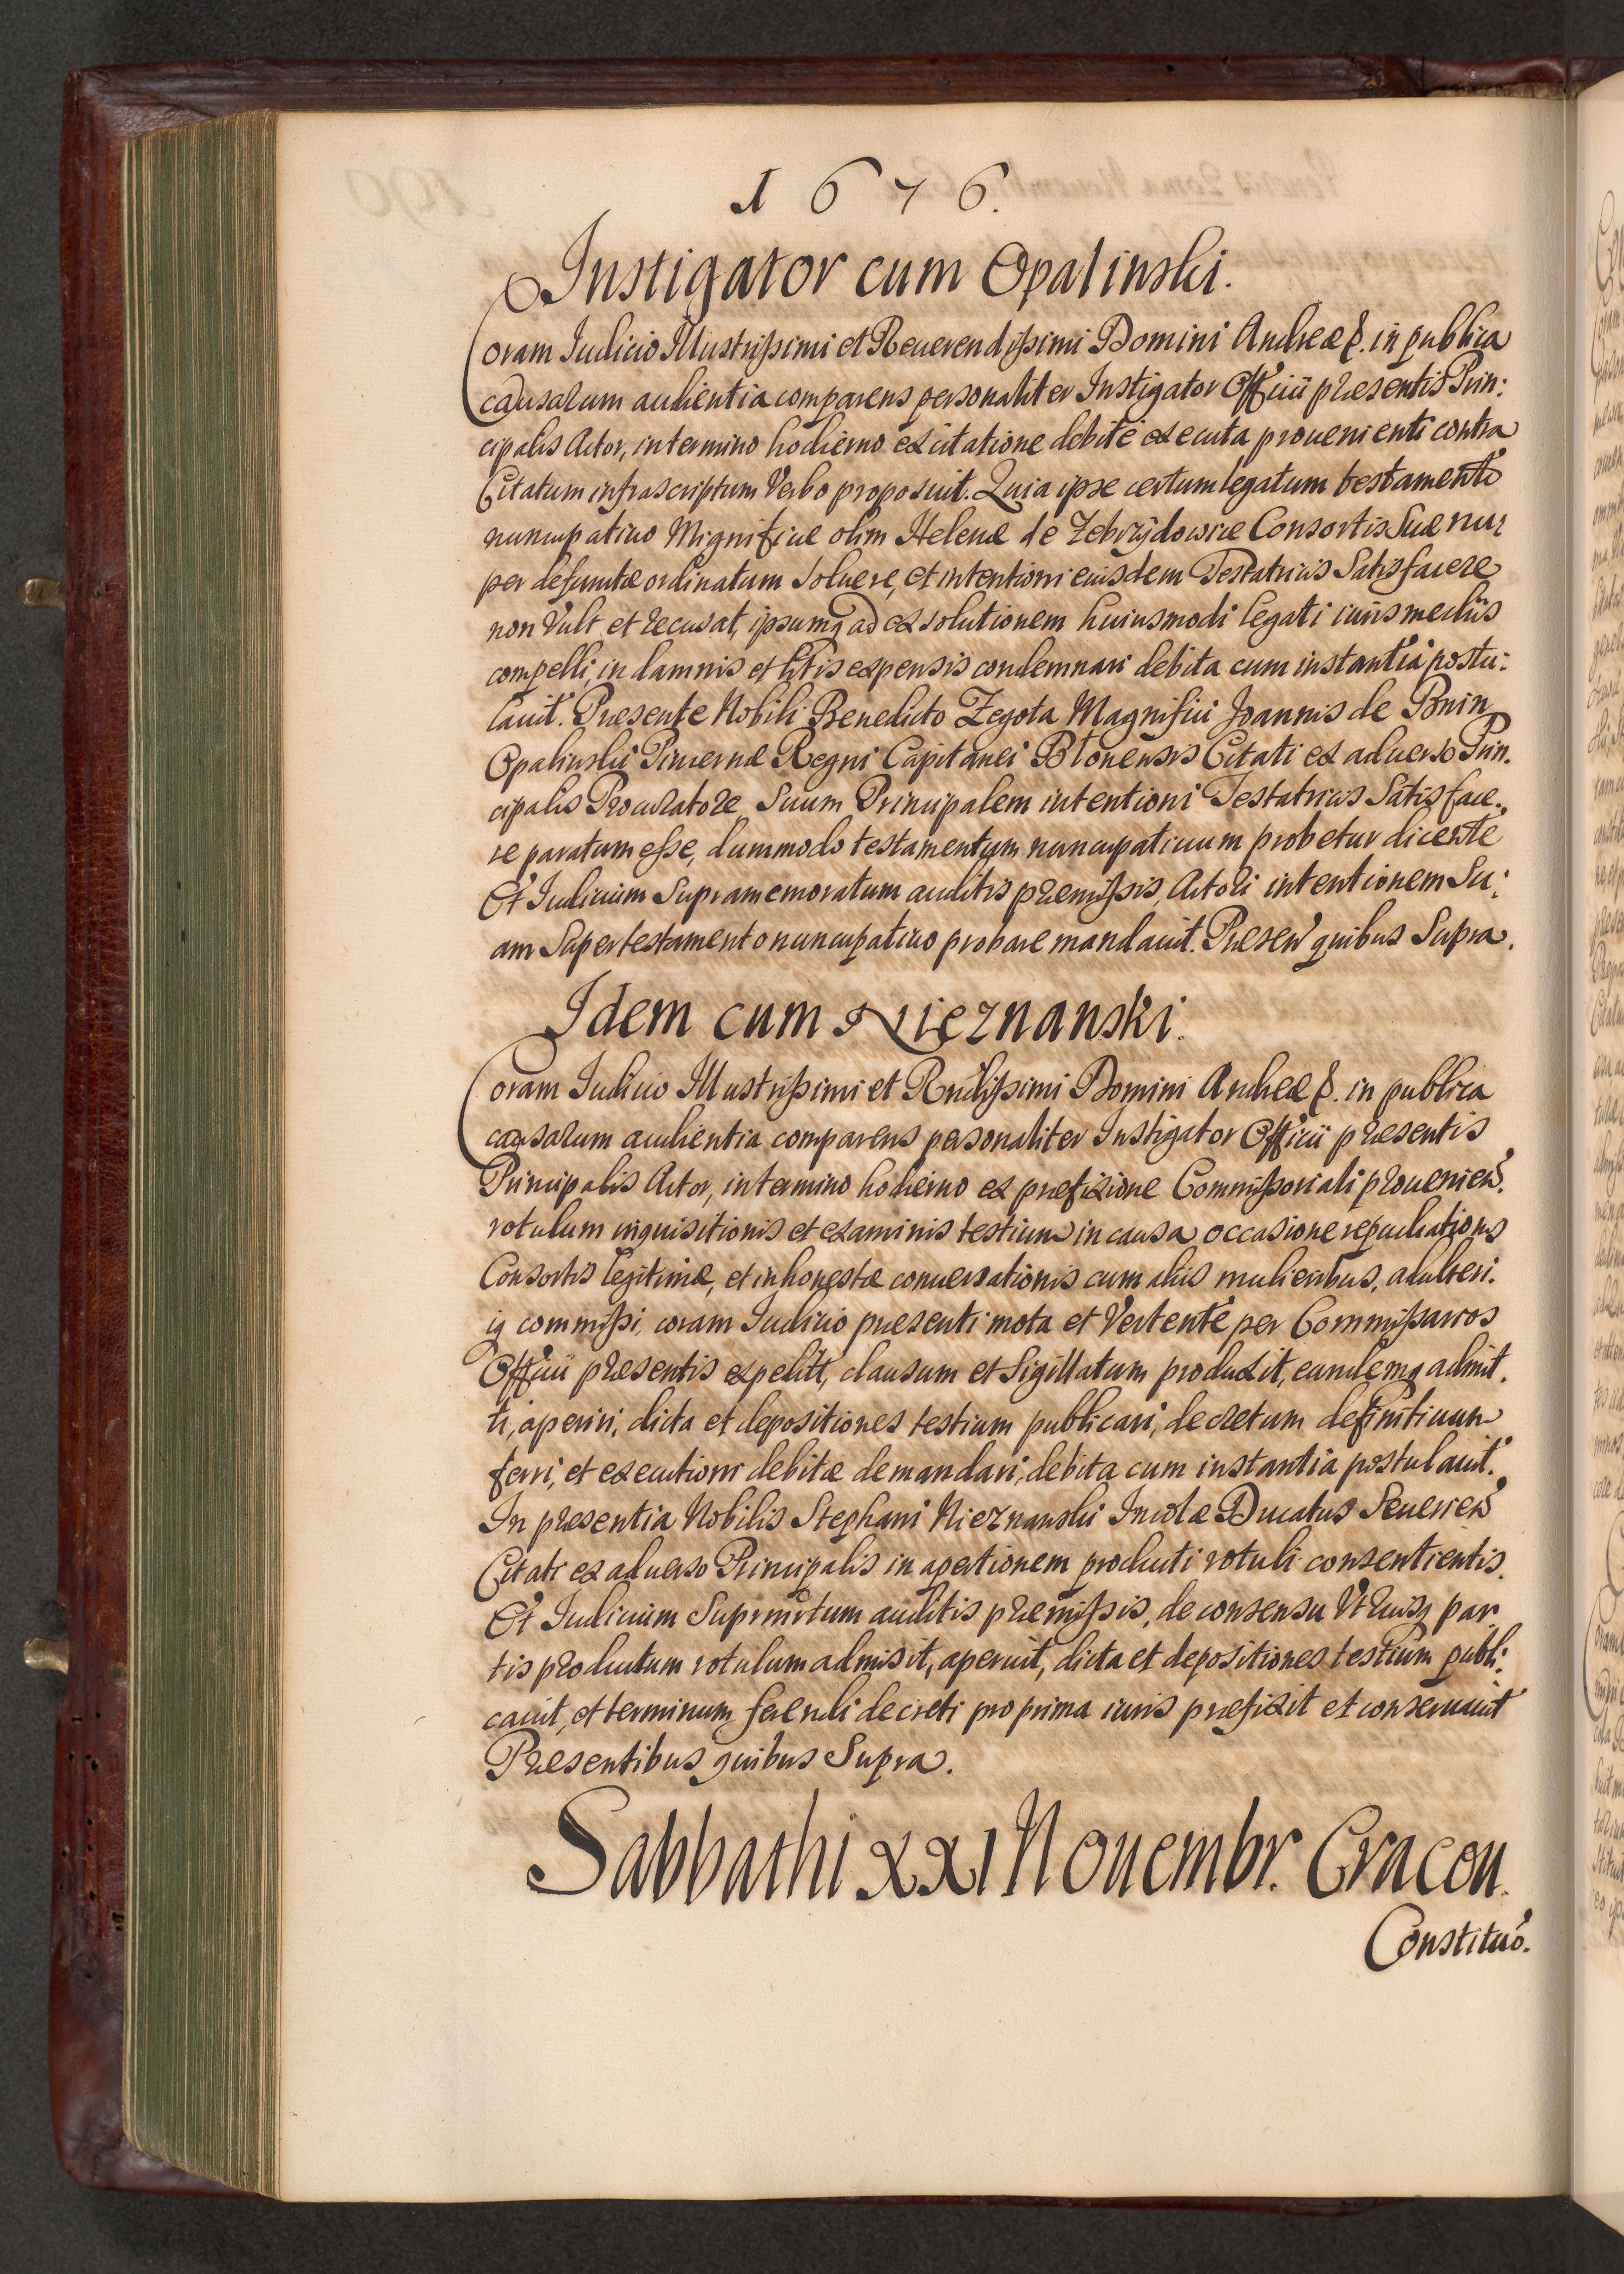 1676.
Instigator cum Opalinski.
Coram Iudicio Illustrissimi et Reuerendissimi Domini Andreæ &. in publica
causarum audientia comparens personaliter Instigator Officii præsentis Prin:
cipalis Actor, in termino hodierno ex citatione debitè executa prouenienti contra
Citatum infrascriptum Verbo proposuit. Quia ipse certum legatum testamento
nuncupatiuo Magnificæ olim Helenæ de Zebrzÿdowice Consortis Suæ nu:
per defunctæ ordinatum soluere, et intentioni eiusdem Testatricis Satisfacere
non Vult et recusat, ipsumq ad exsolutionem huiusmodi legati iuris mediis
compelli, in damnis et litis expensis condemnari debita cum instantia postu:
lauit. Præsente Nobili Benedicto Zegota Magnifici Joannis de Bnin
Opalinski Pincernæ Regni Capitanei Blonensis Citati ex aduerso Prin.
cipalis Procuratore Suum Principalem intentioni Testatricis Satisface.
re paratum esse, dummodo testamentum nuncupatiuum probetur dicente
Et Iudicium Supramemoratum auditis præmissis, Actori intentionem Su:
am Super testamento nuncupatiuo probare mandauit. Præsen quibus Supra.
Idem cum Nieznanski.
Coram Iudicio Illustrissimi et Rndissimi Domini Andreæ &. in publica
causarum audientia comparens personaliter Instigator Officii præsentis
Principalis Actor, in termino hodierno ex præfixione Commissoriali prouenien.
rotulum inquisitionis et examinis testium in causa occasione repudiationis
Consortis legitimæ, et inhonestæ conuersationis cum aliis mulieribus, adulteri.
iq commissi, coram Iudicio præsenti mota et Vertente per Commissarios
Officii præsentis expedit, clausum et Sigillatum produxit, eundemq admit.
ti, aperiri, dicta et depositiones testium publicari, decretum definitiuum
ferri, et executioni debitæ demandari, debita cum instantia postulauit.
In præsentia Nobilis Stephani Nieznanski Incolæ Ducatus Seuerien
Citati ex aduerso Principalis in apertionem producti rotuli consentientis.
Et Iudicium Suprmrtum auditis præmissis, de consensu Vtriusq par
tis productum rotulum admisit, aperuit, dicta et depositiones testium publi:
cauit, et terminum ferendi decreti pro prima iuris præfixit et conseruauit
Præsentibus quibus Supra.
Sabbathi XXI Nouembr. Cracou.
Constituo.